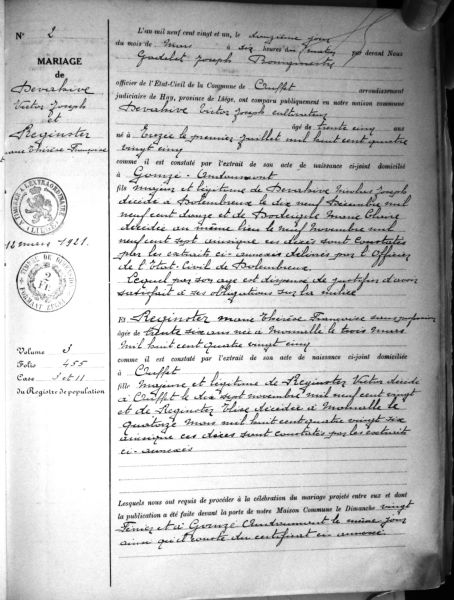 N° 2
MARIAGE
de
Devahive
Victor Joseph
et
Reginster
Marie Thérèse Françoise
12 mars 1921.
Volume 3
Folio 455
Case 5 et 11
du Registre de population
L'an mil neuf cent vingt et un, le douzième jour
du mois de Mars à dix heures du matin par devant Nous
Joseph Bourgmestre
officier de l'Etat-Civil de la Commune de Ouffet arrondissement
judiciaire de Huy, province de Liége, ont comparu publiquement en notre maison commune
Devahive Victor Joseph cultivateur
âgé de trente cinq ans
né à le premier juillet mil huit cent quatre
vingt cinq
comme il est constaté par l'extrait de son acte de naissance ci-joint domicilié
à
fils majeur et légitime de Devahive Nicolas Joseph
décédé à le dix neuf Décembre mil
neuf cent douze et de Marie Claire
décédée au même lieu le neuf Novembre mil
neuf cent sept ainsi que ces décès sont constatés
par les extraits ci-annexés délivrés par l'Officier
de l'état-civil de
Lequel par son âge est dispensé de justifier d'avoir
satisfait à ses obligations sur la milice
Et Reginster Marie Thérèse Françoise sans profession
âgée de trente six ans née à le trois Mars
mil huit cent quatre vingt cinq
comme il est constaté par l'extrait de son acte de naissance ci-joint domiciliée
à Ouffet
fille Majeure et légitime de Reginster Victor décédé
à Ouffet le dix sept novembre mil neuf cent vingt
et de Reginster Elise décédée à le
quatorze Mars mil huit cent quatre vingt six
ainsi que ces décès sont constatés par les extraits
ci-annexés
Lesquels nous ont requis de procéder à la célébration du mariage projeté entre eux et dont
la publication a été faite devant la porte de notre Maison Commune le Dimanche vingt
Février et à le même jour
ainsi qu'il conste du certificat ci-annexé